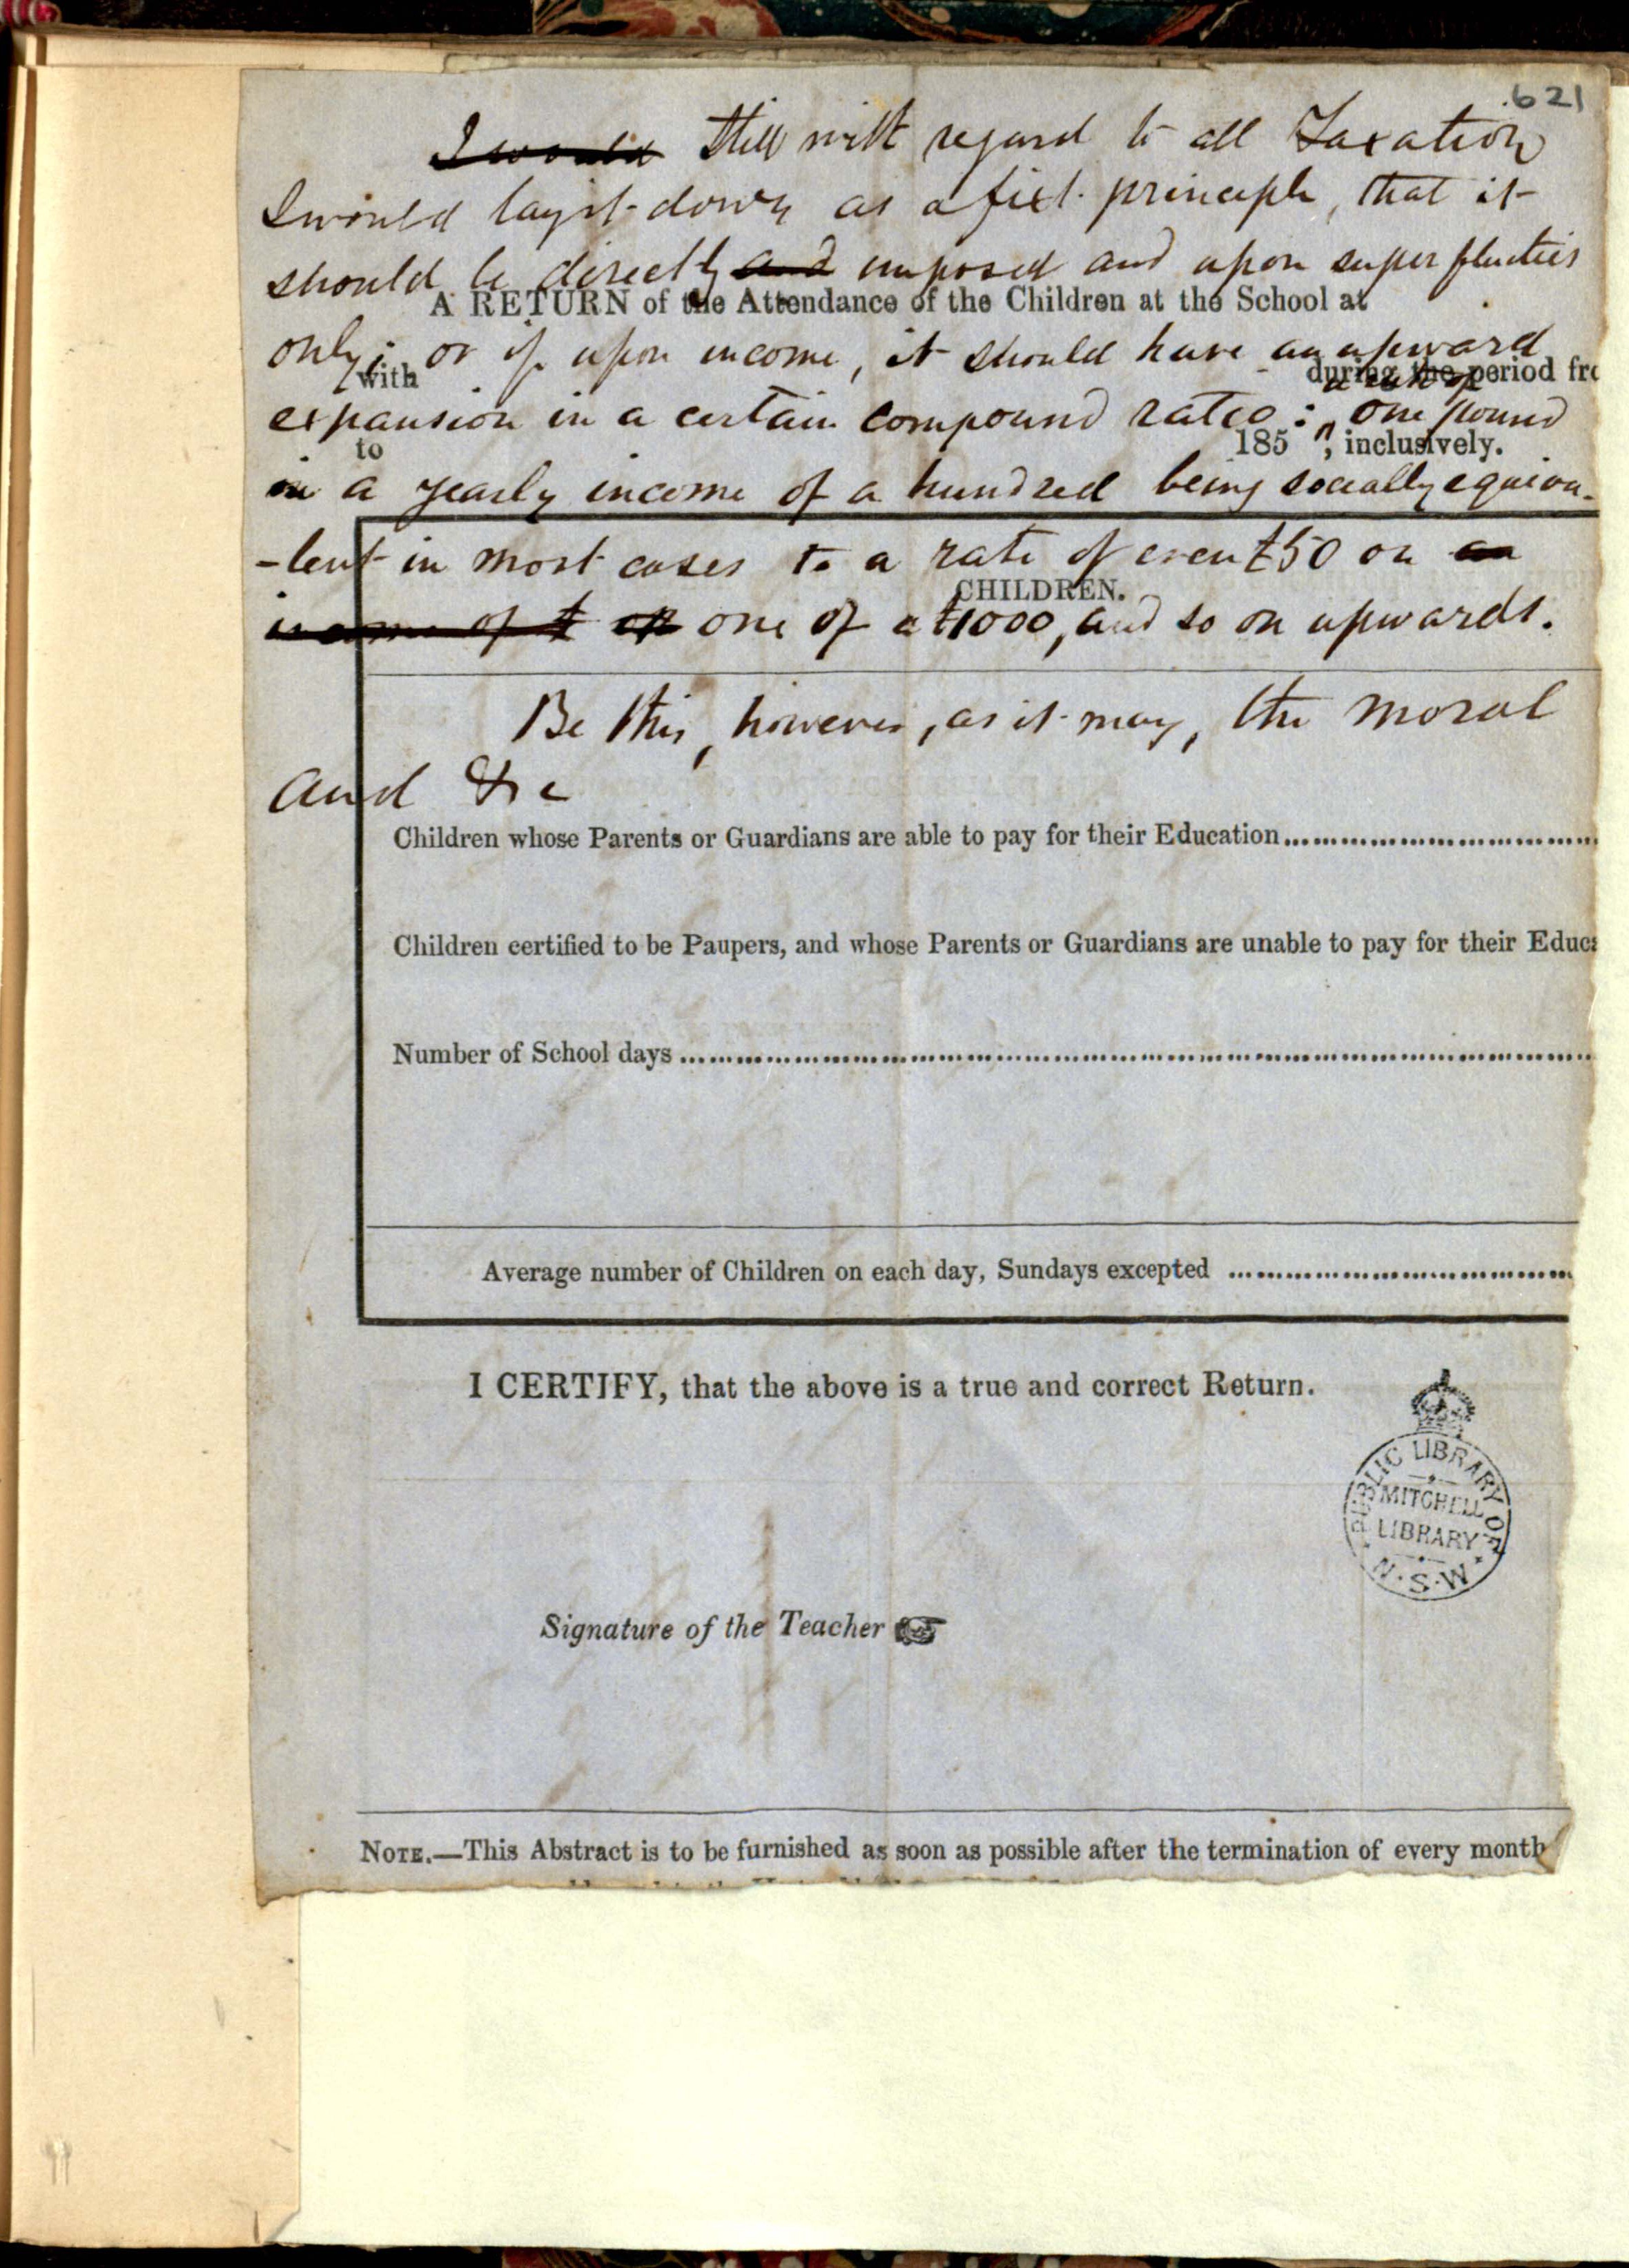 621
I would Still with regard to all Taxation
I would lay it down as a fixt principle, that it
should be directly and imposed and upon superfluities
A RETURN of the Attendance of the Children at the School at
only; or if upon income, it should have an upward
with during the period fro
a rate of
expansion in a certain compound ratio: one pound
to 185 , inclusively.
in a yearly income of a hundred being socially equiva-
-lent in most cases to a rate of even £50 on an
CHILDREN.
income of £ or one of a £1000, and so on upwards.
Be this, however, as it may, the moral
and &c
Children whose Parents or Guardians are able to pay for their Education
Children certified to be Paupers, and whose Parents or Guardians are unable to pay for their Educa
Number of School days
Average number of Children on each day, Sundays excepted
I CERTIFY, that the above is a true and correct Return.
PUBLIC LIBRARY OF
MITCHELL
LIBRARY
N.S.W
Signature of the Teacher
NOTE.—This Abstract is to be furnished as soon as possible after the termination of every month